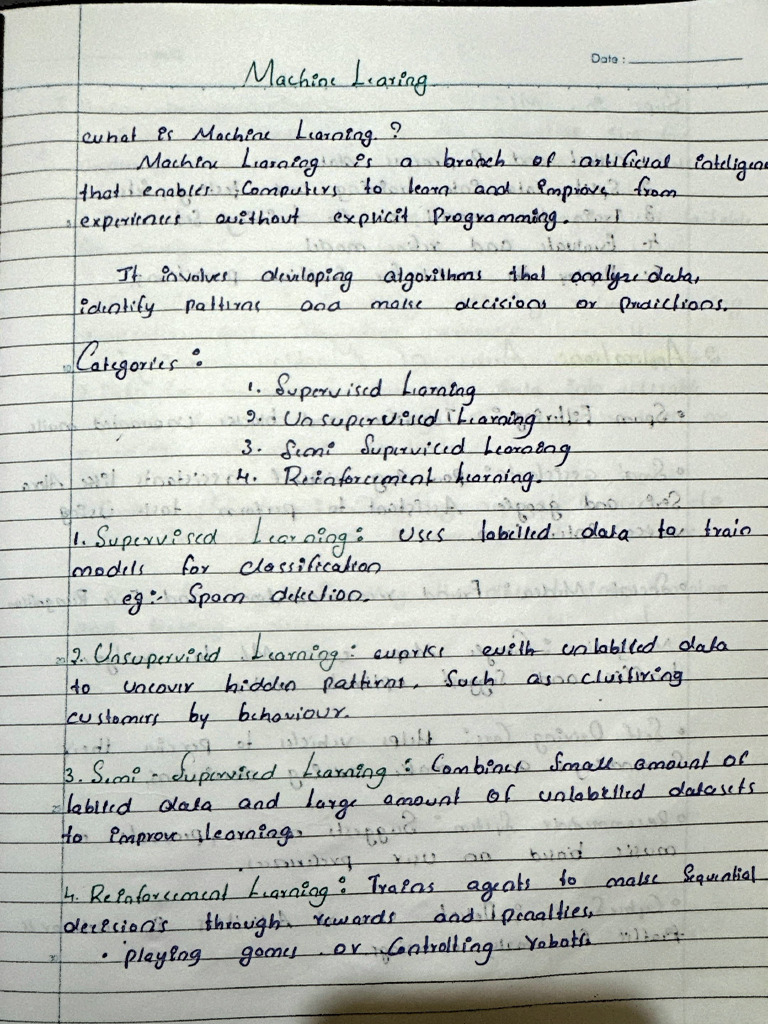 Date :
Machine Learing
what is Machine Learning ?
Machine Learning is a branch of artificial inteligenc
that enables Computers to learn and improve from
experiences without explicit Programming.
It involves developing algorithms that analyze data,
identify patterns and make decisions or predictions.
Categories :
1. Supervised Larning
2. Unsupervised Learning
3. Semi Supervised Learning
4. Reinforcement Learning.
1. Supervised Learning : Uses labelled data to train
models for classification
eg :- Spam detection.
2. Unsupervised Learning : works with unlablled data
to uncover hidden pattern, Such as clustering
customers by behaviour.
3. Semi - Supervised Learning : Combines Small amount of
lablled data and large amount of unlabelled datasets
to improve learning.
4. Reinforcement Learning : Trains agents to make Sequential
decisions through rewards and penalties.
• playing games or Controlling robots